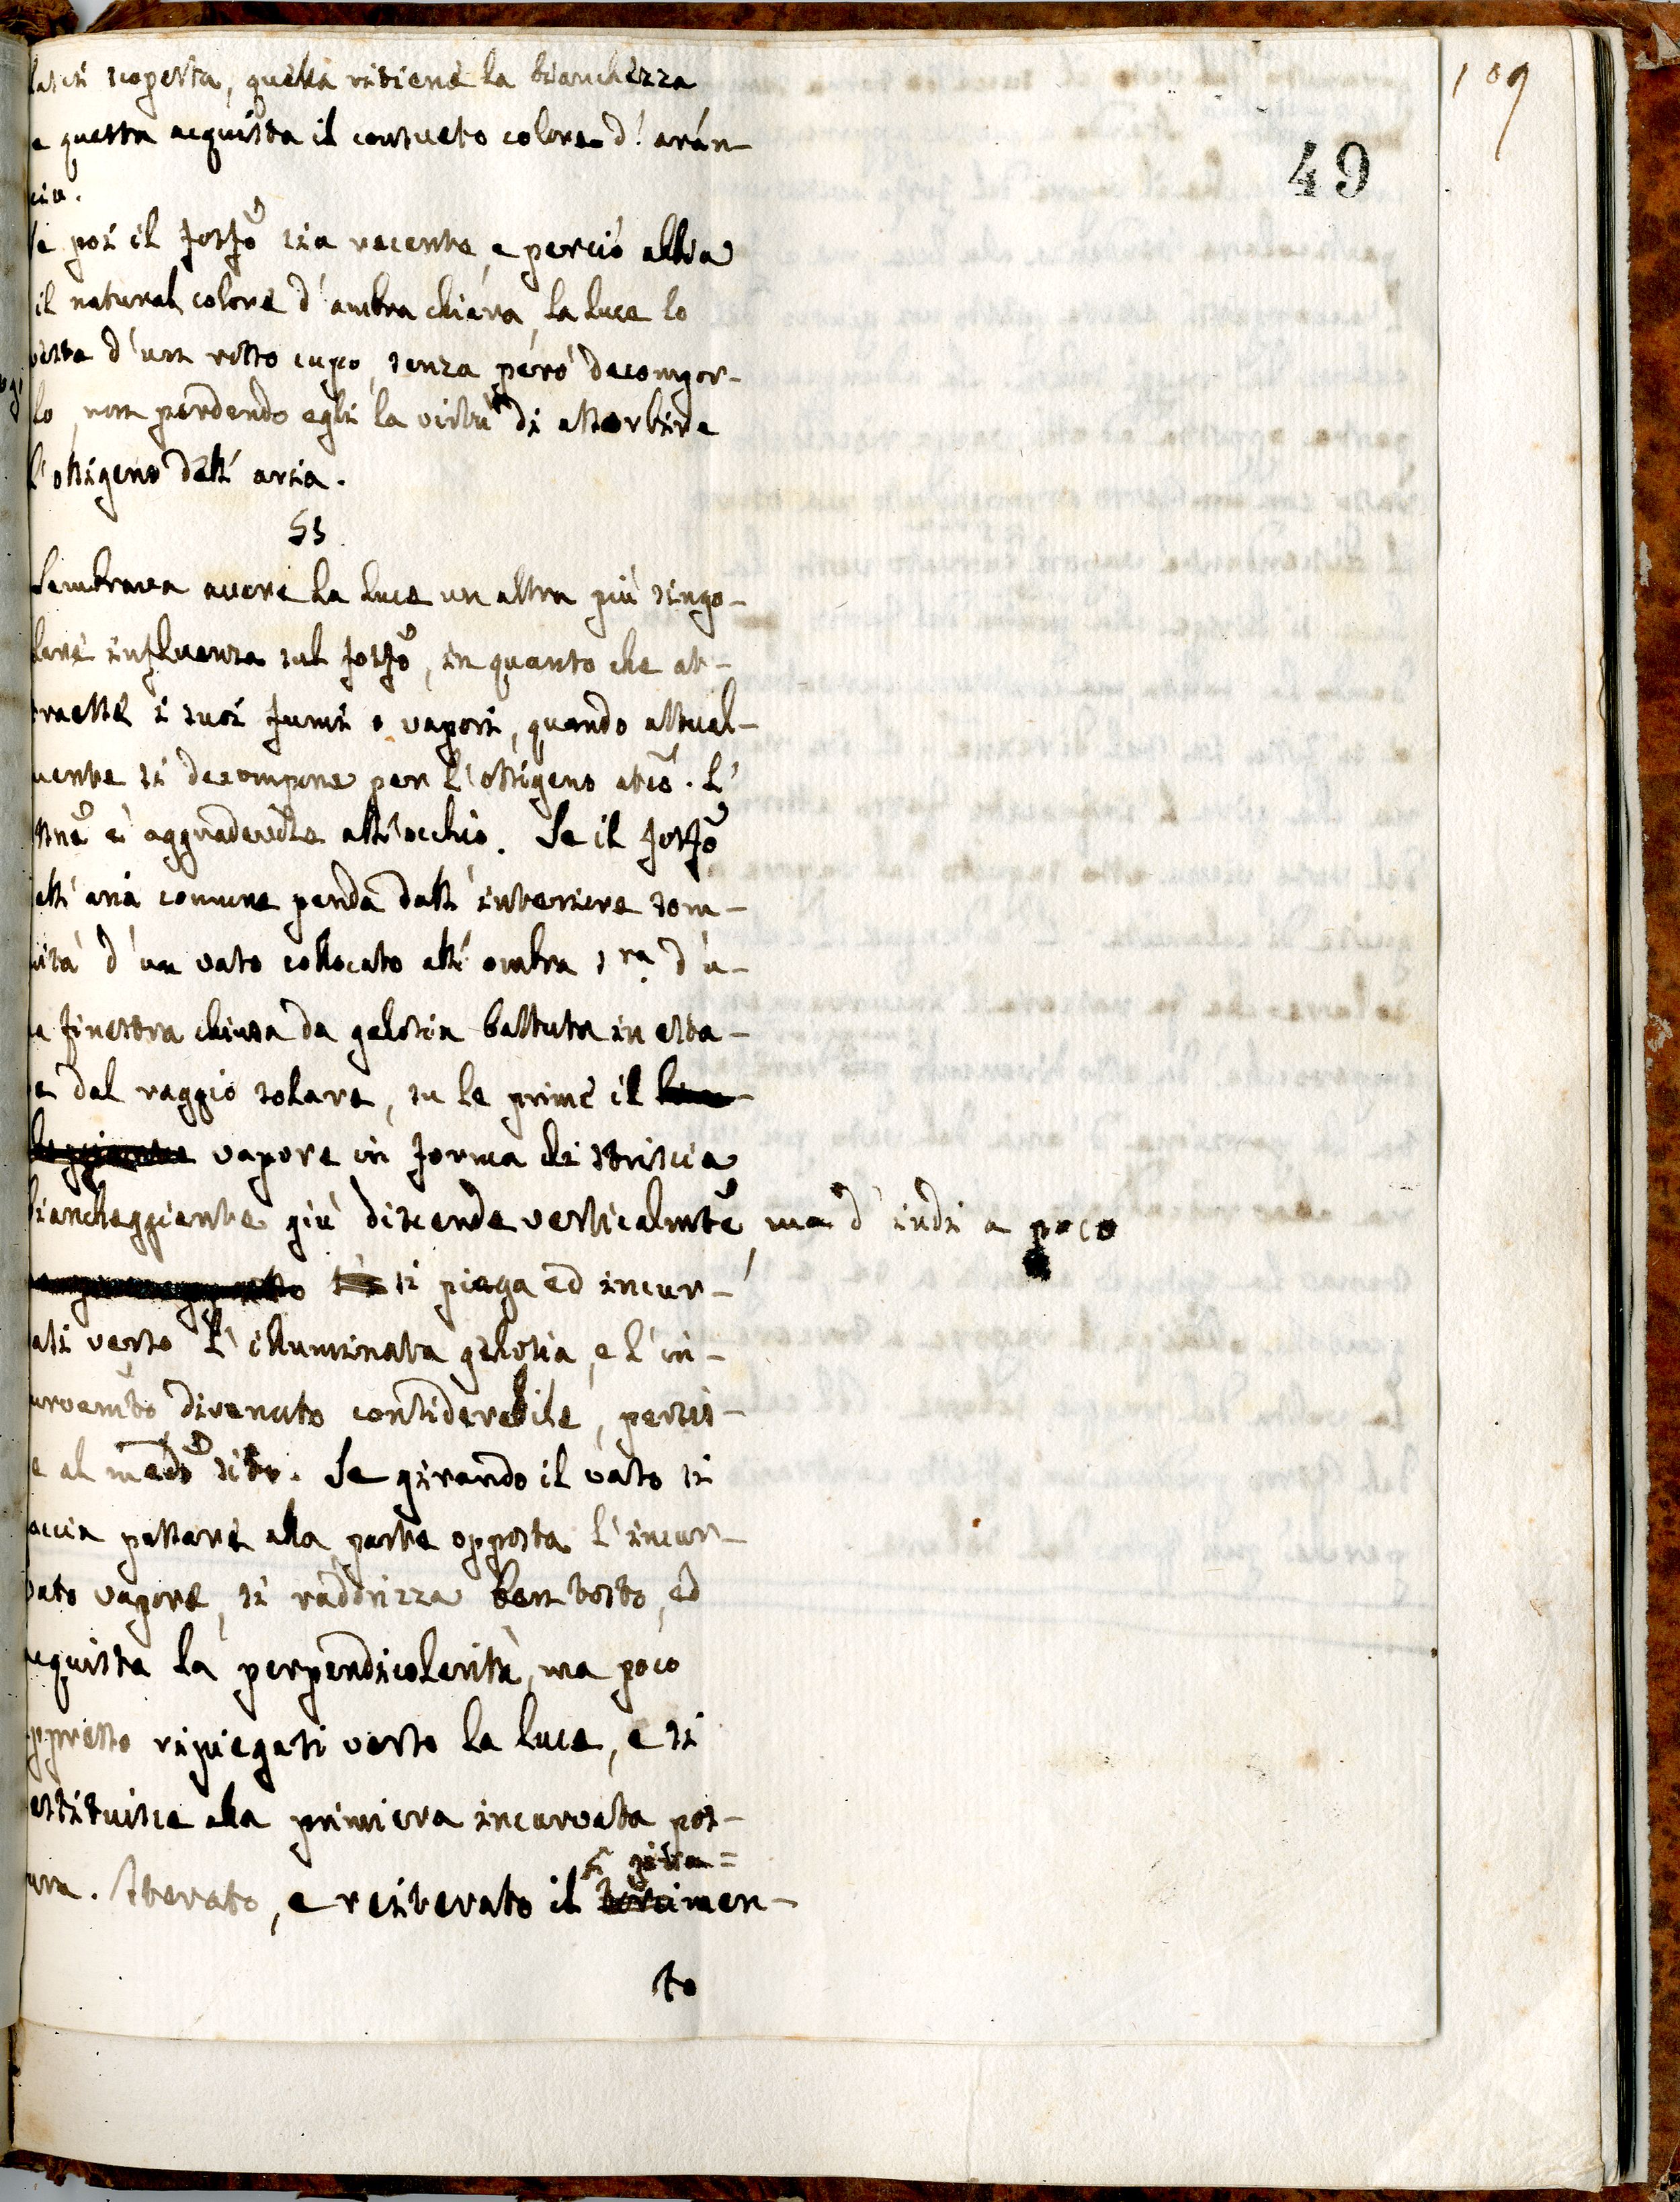 109
49
lasci scoperta, quella ritiene la bianchezza
e questa acquista il consueto colore d'aran-
cio.
Se poi il fosfo sia recente, e perciò abbia
il natural colore d'ambra chiara, la luce lo
veste d'un rosso cupo, senza però decompor-
lo, non perdendo egli la virtù di assorbire
l'ossigeno dell'aria.
§§
Sembrava avere la luce un altra più singo-
lare influenza sul fosfo, in quanto che at-
traesse i suoi fumi o vapori, quando attual-
mente si decompone per l'ossigeno atco. L'
è aggradevole all'occhio. Se il fosfo
all'aria comune penda dall'interiore som-
mità d'un vaso collocato all'ombra d'u-
na finestra chiusa da gelosia battuta in esta-
te dal raggio solare, su le prime il
vapore in forma di striscia
biancheggiante giù discende verticalmte, ma d'indi a poco
si piega ed incur-
vasi verso l'illuminata gelosia, e l'in-
curvamto divenuto considerabile, persis-
te al medo sito. Se girando il vaso si
faccia passare alla parte opposta l'incur-
vato vapore, si raddrizza ben tosto, ed
acquista la perpendicolarità, ma poco
appresso ripiegasi verso la luce, e si
restituisce alla primiera incurvata pos-
tura. Iterato, e reiterato il gira=
men-
to